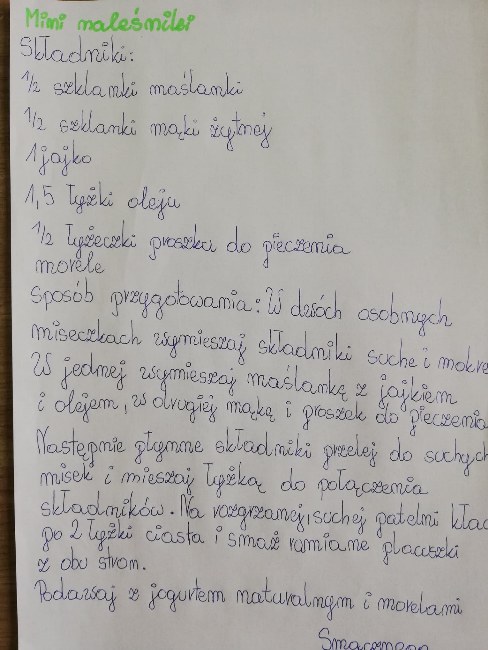 Mini naleśniki
Składniki:
1/2 szklanki maślanki
1/2 szklanki mąki żytnej
1 jajko
1,5 łyżki oleju
1/2 łyżeczki proszku do pieczenia
morele
Sposób przygotowania: W dwóch osobnych
miseczkach wymieszaj składniki suche i mokre
W jednej wymieszaj maślankę z jajkiem
i olejem, w drugiej mąkę i proszek do pieczenia
Następnie płynne składniki przelej do suchych
misek i mieszaj łyżką do połączenia
składników. Na rozgrzanej, suchej patelni kład
po 2 łyżki ciasta i smaż rumiane placuszki
z obu stron.
Podawaj z jogurtem naturalnym i morelami
Smacznego